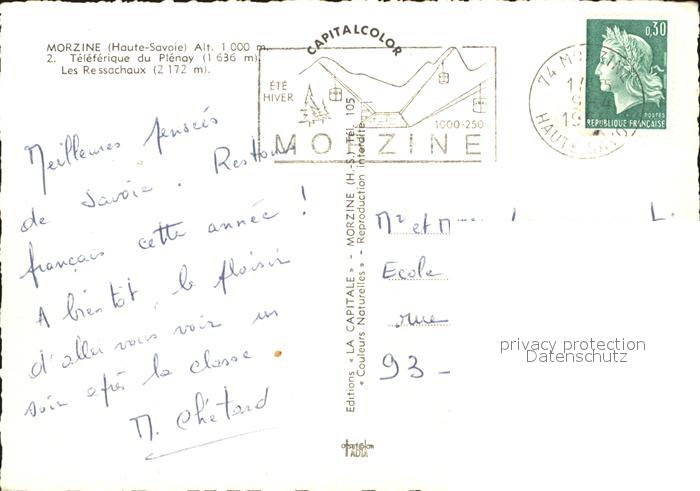 MORZINE (Haute-Savoie) Alt. 1 000 m.
2. Téléférique du Plénay (1 636 m).
Les Ressachaux (2 172 m).
Meilleures pensées
de Savoie. Restons
français cette année !
A bientôt, le plaisir
d'aller vous voir un
soir après la classe.
M. Chétard
CAPITALCOLOR
ÉTÉ
HIVER
1000-250
MORZINE
74 MORZINE
HAUTE SAVOIE
0,30
POSTES
REPUBLIQUE FRANÇAISE
Editions « LA CAPITALE » - MORZINE (H.-S.) Tél. 105
« Couleurs Naturelles » - Reproduction interdite
Mr et M L.
Ecole
rue
93 -
privacy protection
Datenschutz